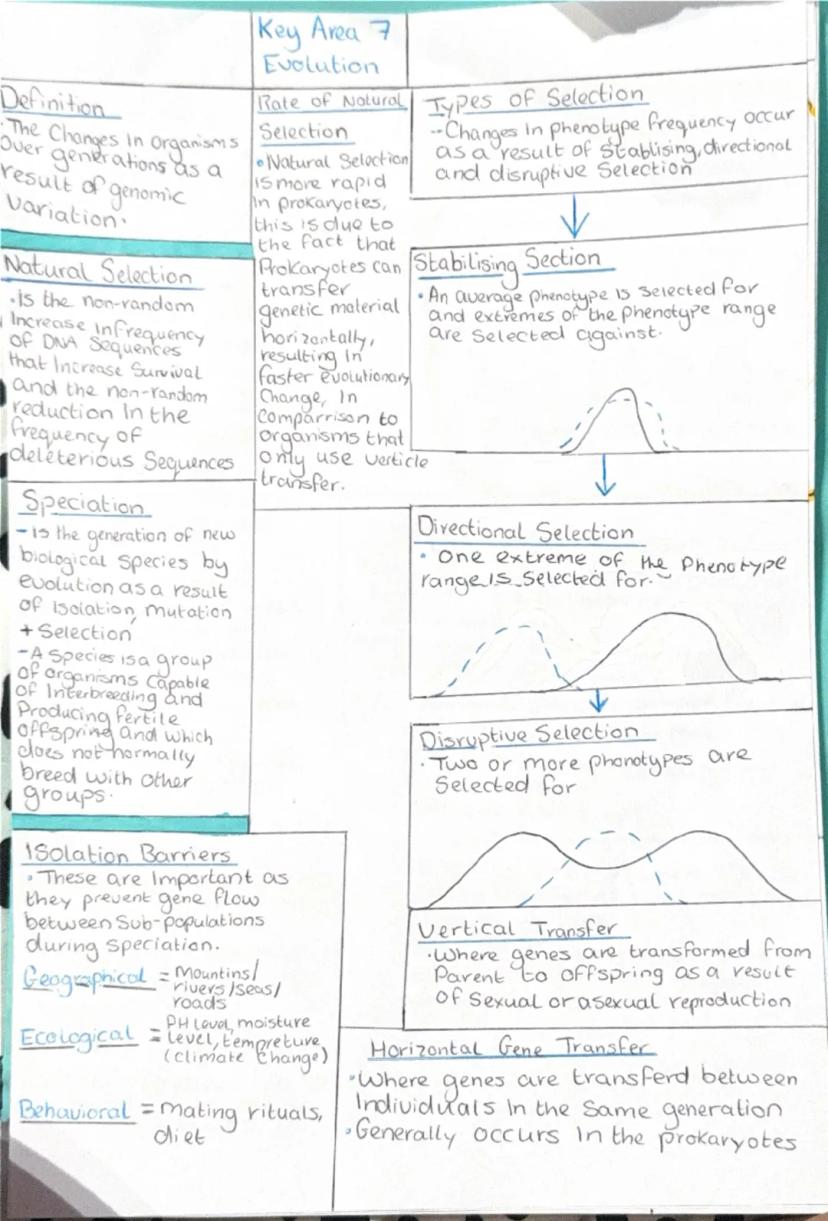 Key Area 7
Evolution
Definition
·The Changes In Organisms
over generations as a
result of genomic
variation.
Natural Selection
·Is the non-random
Increase In frequency
of DNA Sequences
that Increase Survival
and the non-random
reduction In the
frequency of
deleterious Sequences
Speciation
-is the generation of new
biological species by
evolution as a result
of Isolation, mutation
+ Selection
-A species is a group
of organisms capable
of Interbreeding and
Producing fertile
offspring and which
does not normally
breed with other
groups.
Isolation Barriers
·These are Important as
they prevent gene flow
between Sub-populations
during speciation.
Geographical = Mountins/
rivers/seas/
roads
Ecological = PH level, moisture
level, tempreture
(climate Change)
Behavioral = mating rituals,
diet
Rate of Natural
Selection
•Natural Selection
is more rapid
In prokaryotes,
this is due to
the fact that
Prokaryotes can
transfer
genetic material
horizontally,
resulting in
faster evolutionary
Change, In
Comparrison to
organisms that
only use verticle
transfer.
Types of Selection
-Changes In phenotype frequency occur
as a result of Stablising, directional
and disruptive Selection
Stabilising Section
• An average phenotype is selected for
and extremes of the phenotype range
are selected against.
Directional Selection
• One extreme of the Phenotype
range Is Selected for.
Disruptive Selection
·Two or more phonotypes are
Selected for
Vertical Transfer
·Where genes are transformed from
Parent to offspring as a result
of Sexual or asexual reproduction
Horizontal Gene Transfer
•Where genes are transferd between
Individuals In the Same generation
•Generally occurs In the prokaryotes